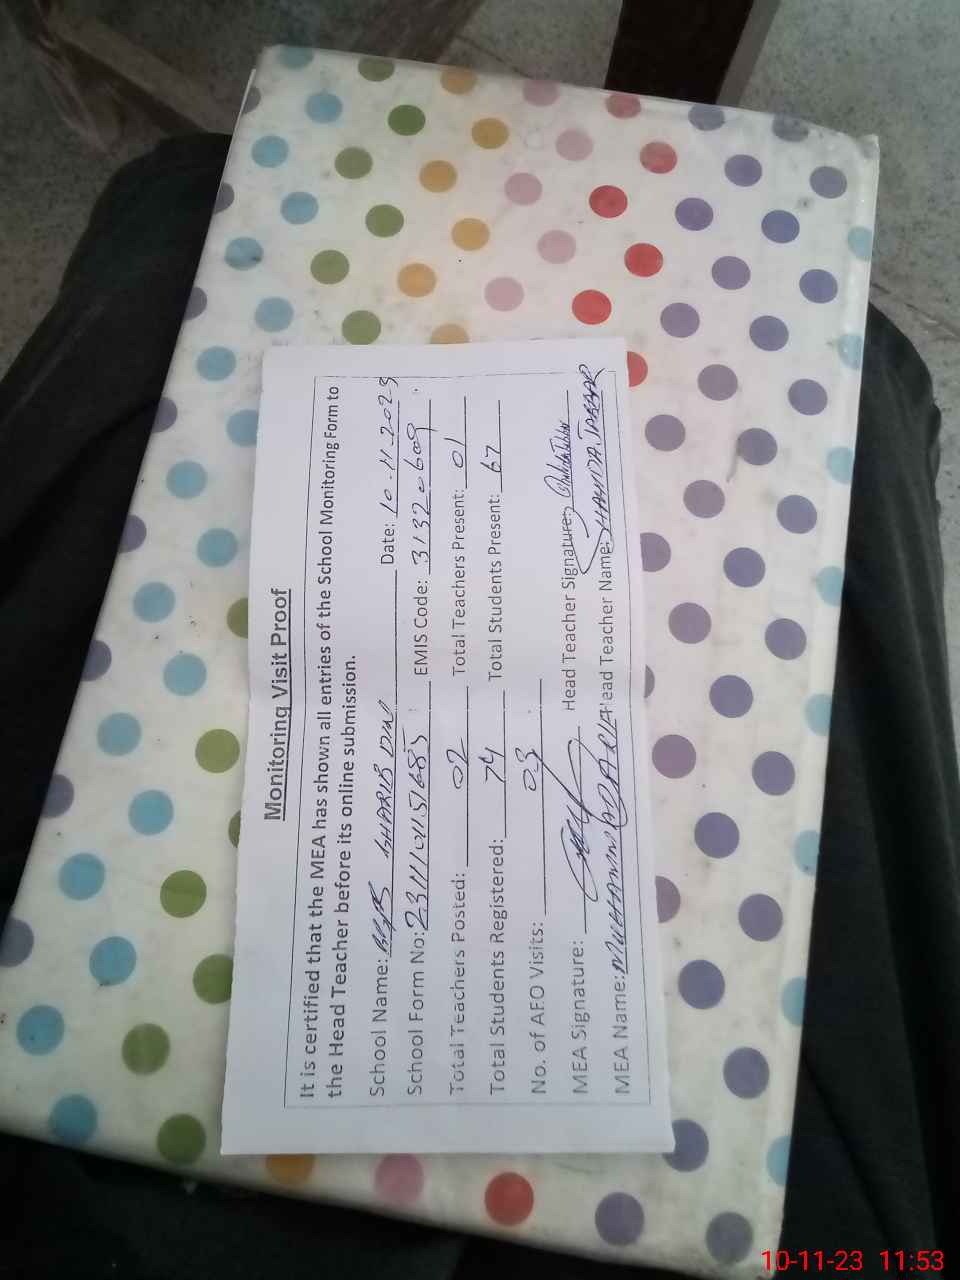 Monitoring Visit Proof
It is certified that the MEA has shown all entries of the School Monitoring Form to
the Head Teacher before its online submission.
School Name: GHARIB Date: 10.11.2023
School Form No: EMIS Code: 31320609
Total Teachers Posted: 02 Total Teachers Present: 01
Total Students Registered: 74 Total Students Present: 67
No. of AEO Visits: 03
MEA Signature: Head Teacher Signature:
MEA Name: MUHAMMAD Head Teacher Name: SHAHIDA JABBAR
10-11-23 11:53